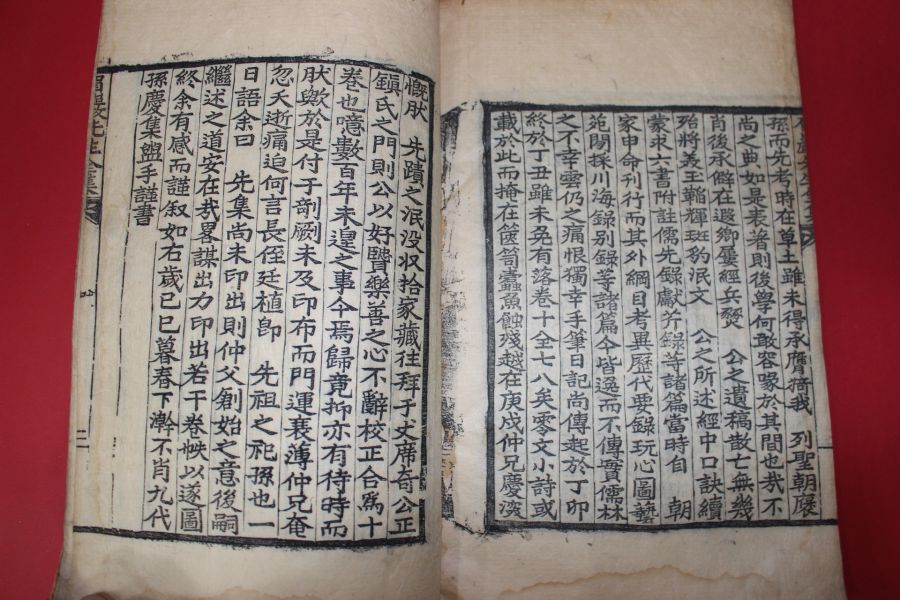 孫而先考時在草土雖未得承膺猗我 列聖朝展
尚之典如是表著則後學何敢容喙於其間也哉不
肖後承僻在遐鄉屢經兵燹 公之遺稿散亡無幾
殆將羲王鞱輝斑豹泯文 公之所述經中口訣續
蒙求六書附註儒先錄獻芹錄等諸篇當時自 朝
家申命刊行而其外綱目考異歷代要錄玩心圖藝
苑閱採川海錄別錄等諸篇今皆逸而不傳實儒林
之不幸雲仍之痛恨獨幸手筆日記尚傳起於丁卯
終於丁丑雖未免有落卷十全七八矣零文小詩或
載於此而掩在篋笥蠹魚蝕殘越在庚戌仲兄慶深
慨肰 先蹟之泯沒収拾家藏往拜于丈席奇公正
鎮氏之門則公以好賢樂善之心不辭校正合爲十
卷也噫數百年未遑之事今焉歸竟抑亦有待時而
肰歟於是付于剞劂未及印布而門運衰薄仲兄奄
忽夭逝痛迫何言長侄廷植卽 先祖之祀孫也一
日語余曰 先集尚未印出則仲父創始之意後嗣
繼述之道安在哉畧謀出力印出若干卷帙以遂圖
終余有感而謹叙如右歲己巳暮春下澣不肖九代
孫慶集盥手謹書
巖先生全集